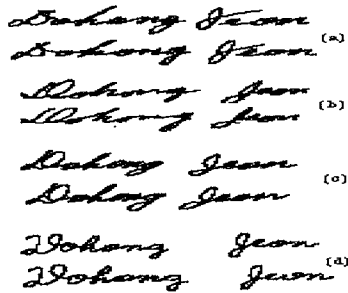 Dohong Jeon
Dohong Jeon (a)
Dohong Jeon
Dohong Jeon (b)
Dohong Jeon
Dohong Jeon (c)
Dohong Jeon
Dohong Jeon (d)